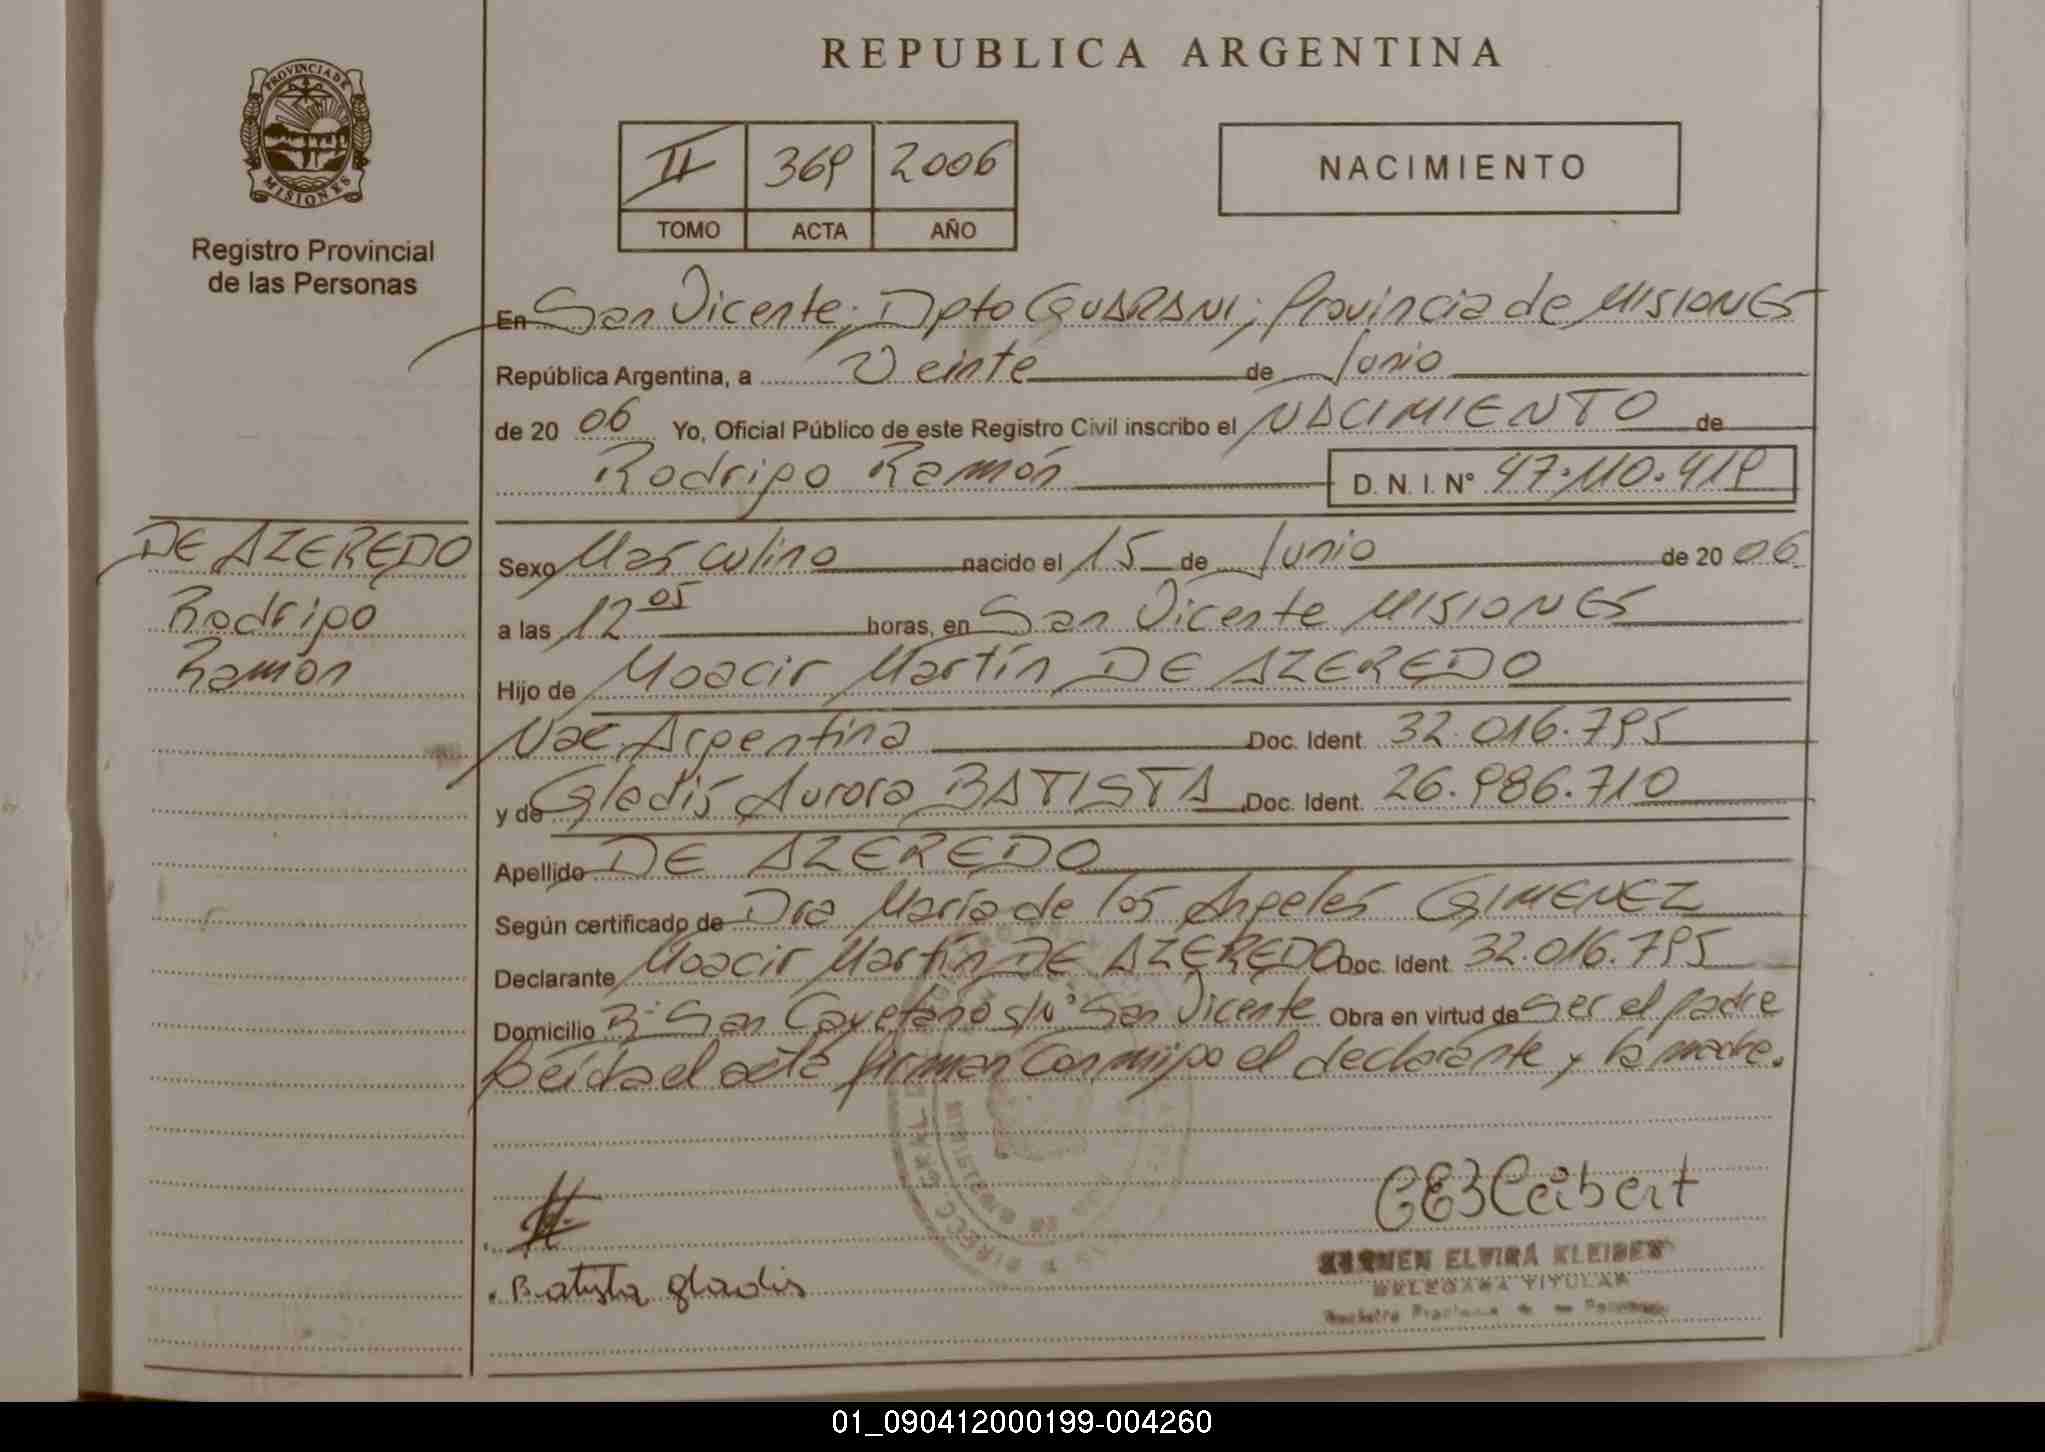 REPUBLICA ARGENTINA
PROVINCIA DE MISIONES
Registro Provincial
de las Personas
II 369 2006
TOMO ACTA AÑO
NACIMIENTO
En San Vicente; Dpto GUARANI; Provincia de MISIONES
República Argentina, a Veinte de Junio
de 2006 Yo, Oficial Público de este Registro Civil inscribo el NACIMIENTO de
Rodrigo Ramón D. N. I. Nº 47.110.419
DE AZEREDO
Rodrigo
Ramón
Sexo Masculino nacido el 15 de Junio de 2006
a las 12 05 horas, en San Vicente MISIONES
Hijo de Moacir Martín DE AZEREDO
Nac Argentina Doc. Ident. 32.016.795
y de Gladis Aurora BATISTA Doc. Ident. 26.986.710
Apellido DE AZEREDO
Según certificado de Dra María de los Angeles GIMENEZ
Declarante Moacir Martín DE AZEREDO Doc. Ident. 32.016.795
Domicilio Bº San Cayetano s/nº San Vicente Obra en virtud de ser el padre
Leída el acta firman conmigo el declarante y la madre.
Batista gladis
ELVIRA
DELEGADA TITULAR
01_090412000199-004260